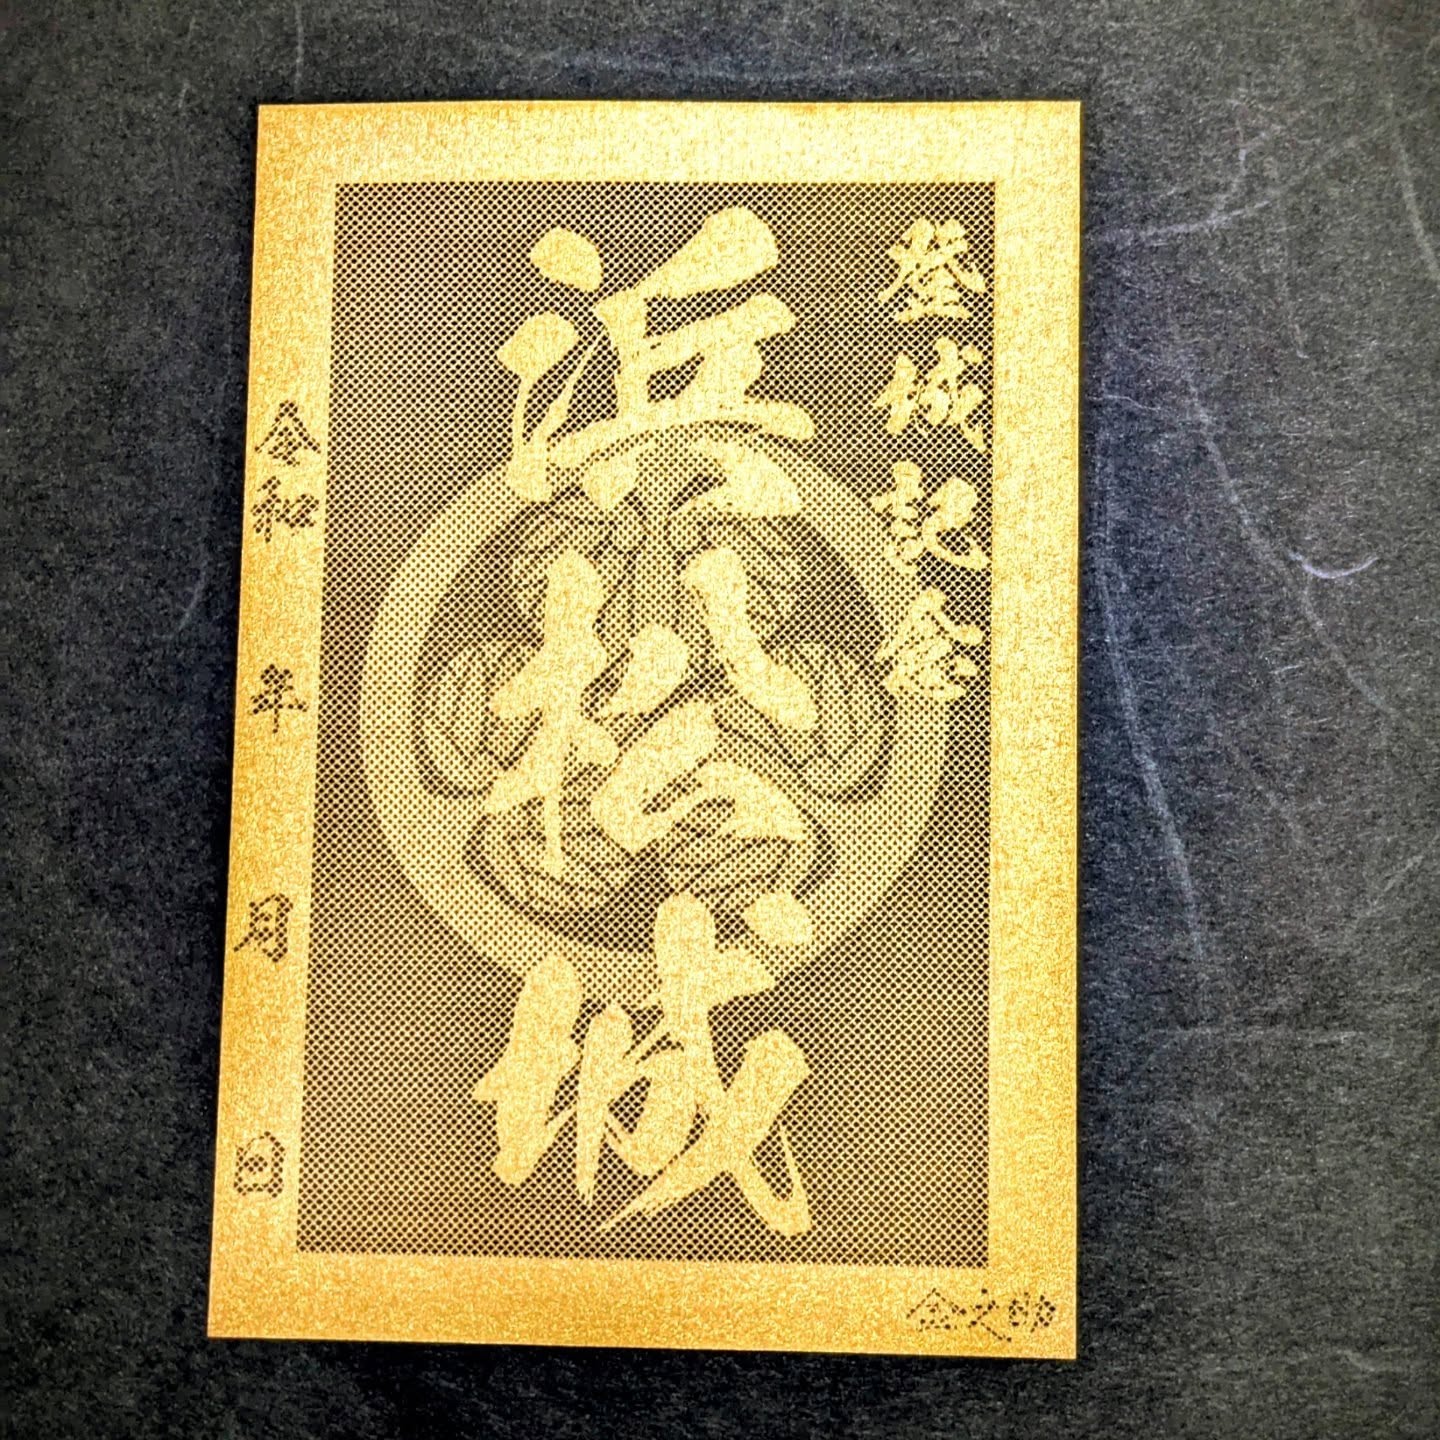 登城記念
浜松城
令和 年 月 日
金文郎